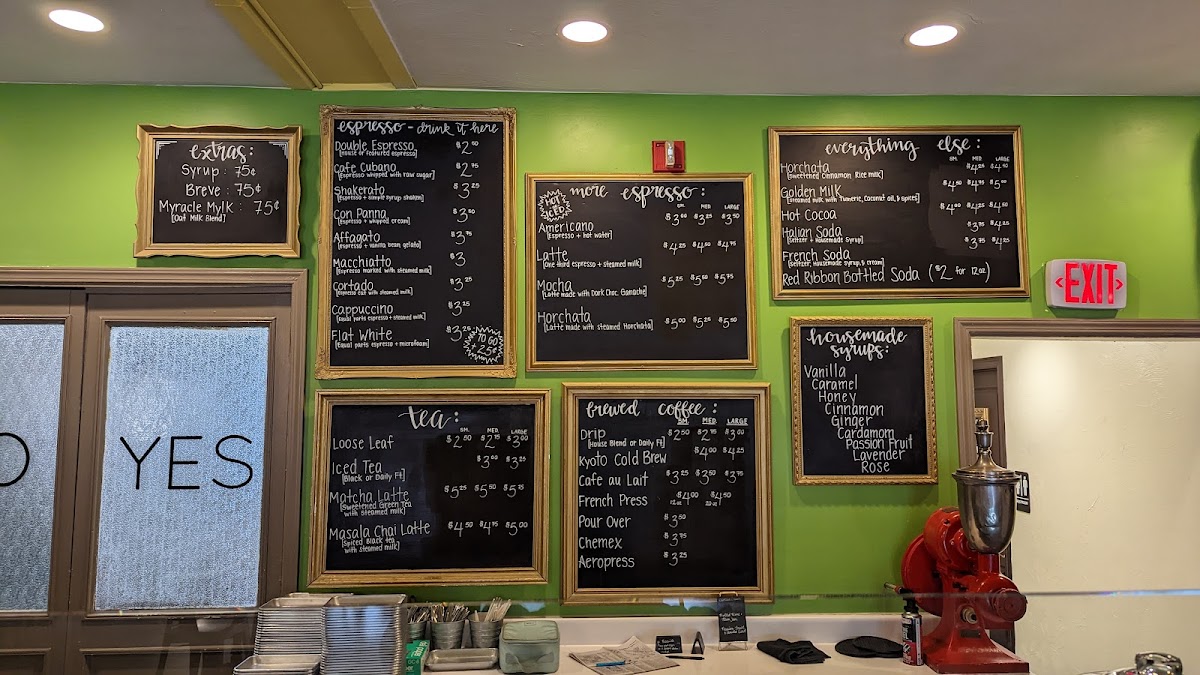 extras:
Syrup : 75¢
Breve : 75¢
Myracle Mylk : 75¢
[Oat Milk Blend]
espresso - drink it here
Double Espresso
[House or featured espresso]
Cafe Cubano $2.75
[Espresso whipped with raw sugar]
Shakerato $3.25
[Espresso + simple syrup shaken]
Con Panna
[Espresso + whipped cream]
Affagato $3.75
[Espresso + vanilla bean gelato]
Macchiatto $3
[Espresso marked with steamed milk]
Cortado
[Espresso cut with steamed milk]
Cappuccino $3.25
[Equal parts espresso + steamed milk]
Flat White $3.25
[Equal parts espresso + microfoam]
TO GO
+ 25¢
more espresso :
HOT
ICED
SM. MED. LARGE
Americano $3.00 $3.25 $3.50
[Espresso + hot water]
Latte $4.25 $4.50 $4.75
[One third espresso + steamed milk]
Mocha $5.25 $5.50 $5.75
[Latte made with Dark Choc. Ganache]
Horchata $5.00 $5.25 $5.50
[Latte made with steamed Horchata]
everything else :
SM. MED. LARGE
Horchata
[Sweetened Cinnamon Rice milk]
Golden Milk
[Steamed milk with Tumeric, Coconut oil, & spices]
Hot Cocoa
Italian Soda
[Seltzer + Housemade Syrup]
French Soda
[Seltzer, Housemade syrup, & cream]
Red Ribbon Bottled Soda ($2 for 12oz)
EXIT
housemade
syrups:
Vanilla
Caramel
Honey
Cinnamon
Ginger
Cardamom
Passion Fruit
Lavender
Rose
tea :
SM. MED. LARGE
Loose Leaf $2.50 $2.75 $3.00
Iced Tea $3.00 $3.25
[Black or Daily Ft]
Matcha Latte $5.25 $5.50 $5.75
[Sweetened Green Tea
with steamed milk]
Masala Chai Latte $4.50 $4.75 $5.00
[Spiced Black tea
with steamed milk]
brewed coffee :
SM. MED. LARGE
Drip $2.50 $2.75 $3.00
[House Blend or Daily Ft]
Kyoto Cold Brew $4.00 $4.25
Cafe au Lait $3.25 $3.50 $3.75
French Press $4.00 $4.50
Pour Over $3.50
Chemex $3.75
Aeropress $3.25
YES